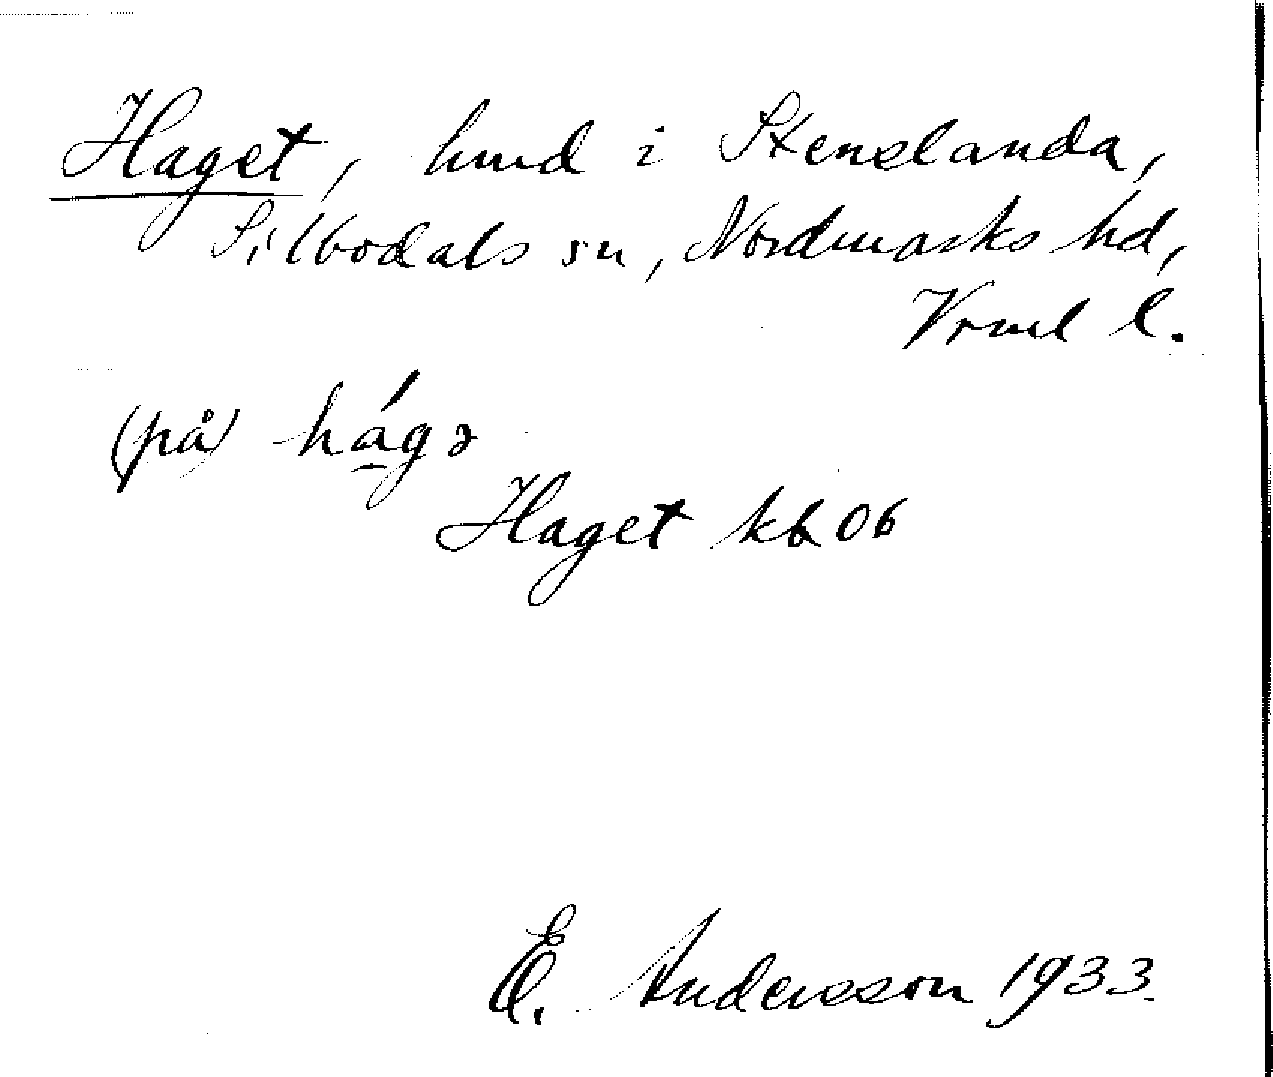 Haget, hmd i Stenslanda,
Silbodals sn, Nordmarks hd,
Vrml l.
(på) há̱gə
Haget kb 06
E. Andersson 1933.